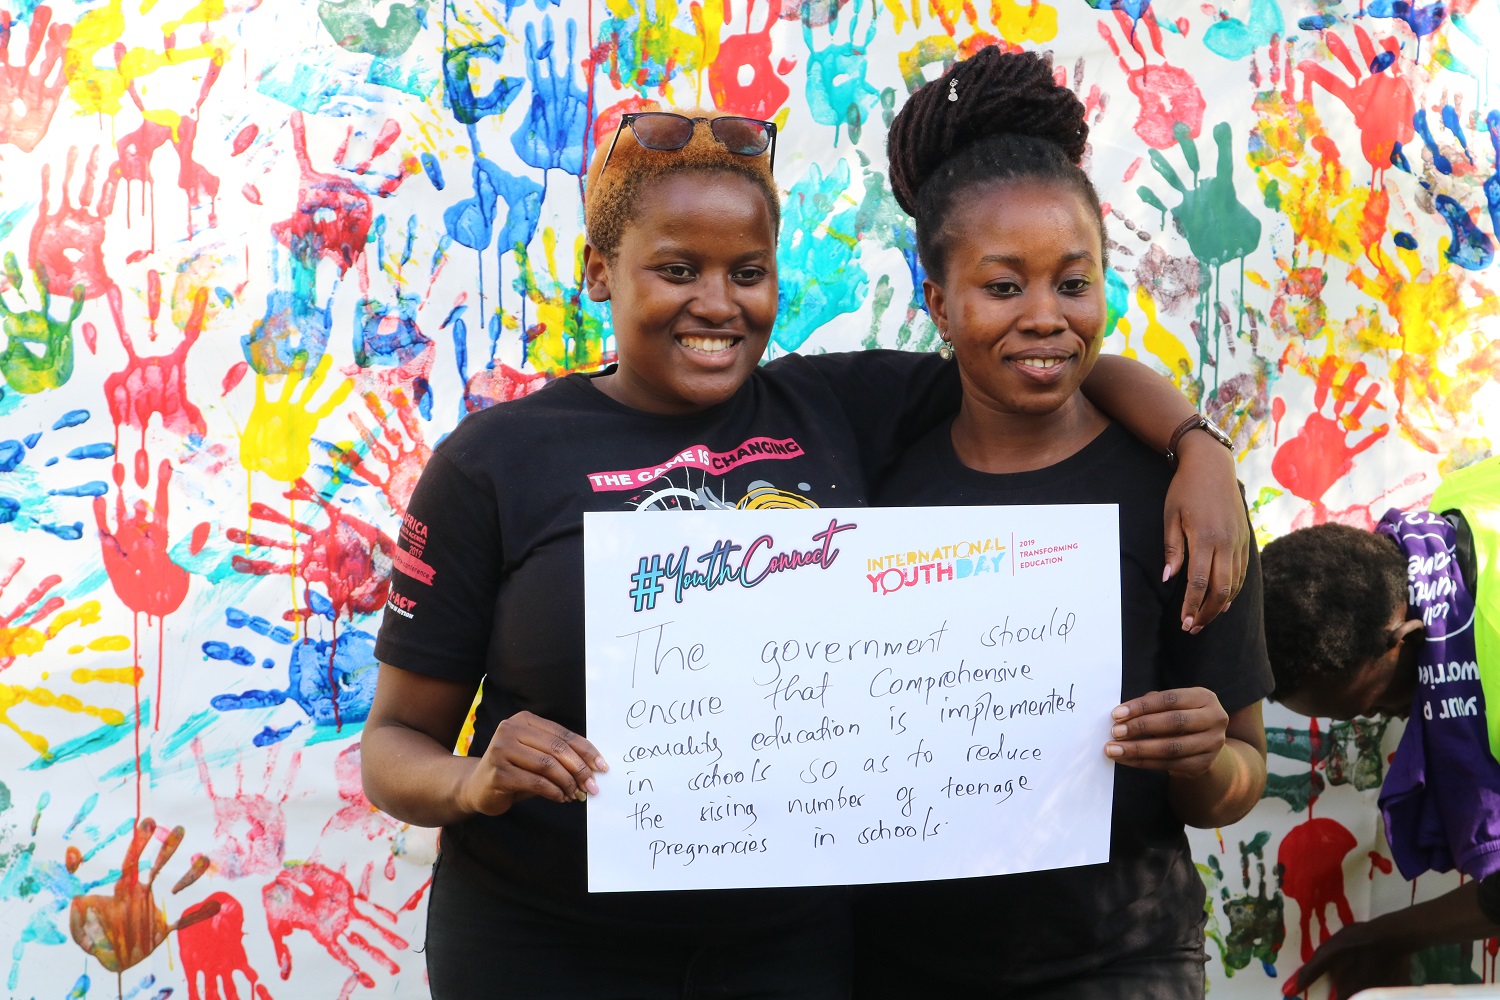 THE GAME IS CHANGING
AFRICA
2019
#YouthConnect
INTERNATIONAL
YOUTH DAY
2019
TRANSFORMING
EDUCATION
The government should
ensure that Comprehensive
sexuality education is implemented
in schools so as to reduce
the rising number of teenage
pregnancies in schools.